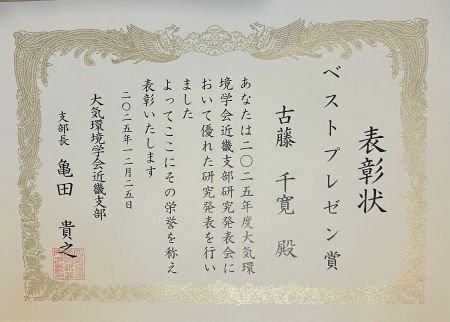 表彰状
ベストプレゼン賞
古藤 千寛 殿
あなたは二〇二五年度大気環
境学会近畿支部研究発表会に
おいて優れた研究発表を行い
ました
よってここにその栄誉を称え
表彰いたします
二〇二五年一二月二五日
大気環境学会近畿支部
支部長 亀田 貴之